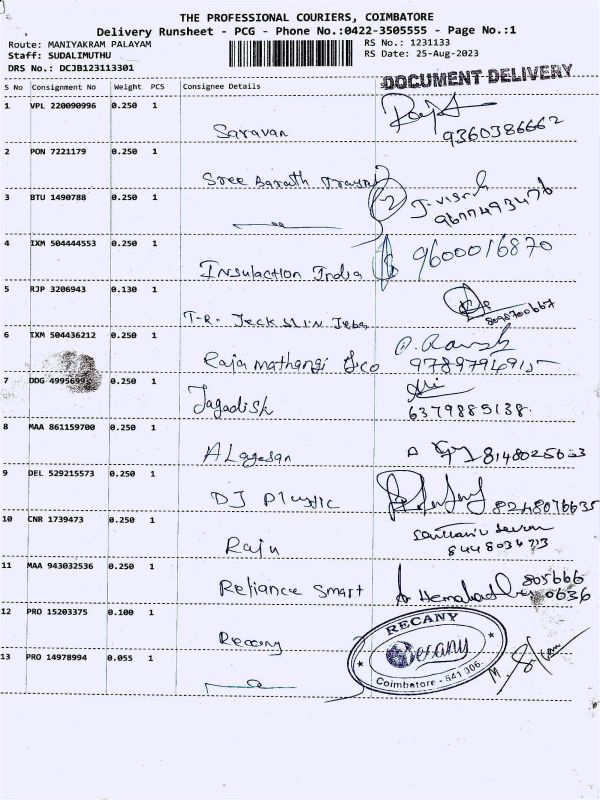 THE PROFESSIONAL COURIERS, COIMBATORE
Delivery Runsheet - PCG - Phone No.:0422-3505555 - Page No.:1
Route: MANIYAKRAM PALAYAM RS No.: 1231133
Staff: SUDALIMUTHU RS Date: 25-Aug-2023
DRS No.: DCJB123113301
DOCUMENT DELIVERY
S No Consignment No Weight PCS Consignee Details
1 VPL 220090996 0.250 1
Saravan 9360386662
2 PON 7221179 0.250 1
Sree Barath
3 BTU 1490788 0.250 1
2
9677493476
4 IXM 504444553 0.250 1
Insulaction India 9600016870
5 RJP 3206943 0.130 1
T.R.
6 IXM 504436212 0.250 1
Raja mathangi &co
7 DDG 0.250 1
Jagadish 6379885138.
8 MAA 861159700 0.250 1
ALagesan
9 DEL 529215573 0.250 1
DJ Plastic 8248076635
10 CNR 1739473 0.250 1
Raju
11 MAA 943032536 0.250 1
Reliance Smart 805666
0636
12 PRO 15203375 0.100 1
Recany
RECANY
Recany
Coimbatore - 641 006
13 PRO 14978994 0.055 1